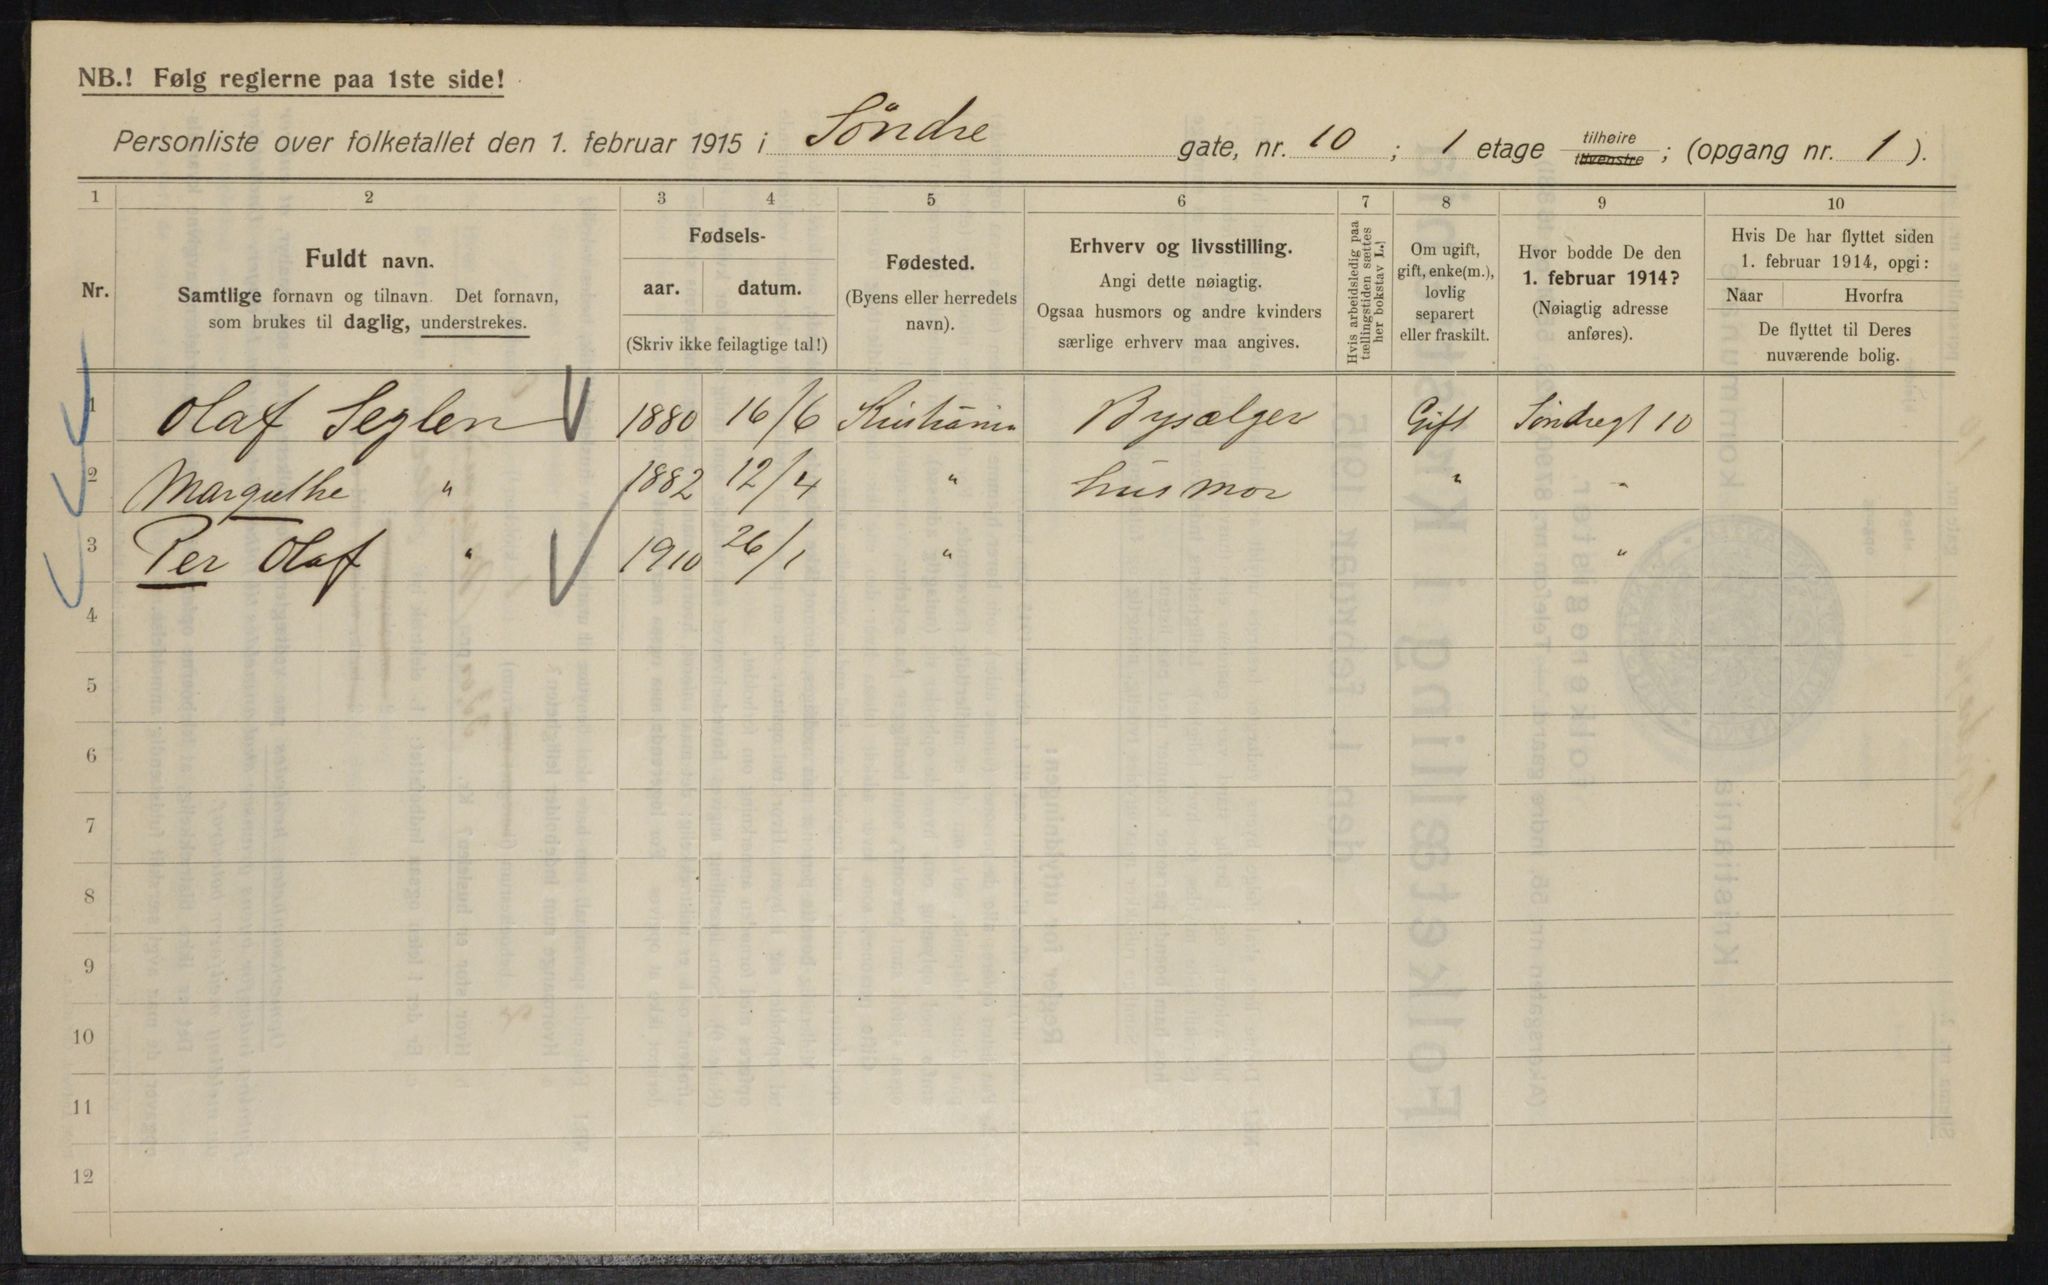 NB.! Følg reglerne paa 1ste side!
Personliste over folketallet den 1. februar 1915 i Söndre gate, nr. 10 ; 1 etage tilhøire tilvenstre ; (opgang nr. 1 ).
1 2 3 4 5 6 7 8 9 10
Nr.
Fuldt navn.
Samtlige fornavn og tilnavn. Det fornavn,
som brukes til daglig, understrekes.
Fødsels-
aar. datum.
(Skriv ikke feilagtige tal!)
Fødested.
(Byens eller herredets
navn).
Erhverv og livsstilling.
Angi dette nøiagtig.
Ogsaa husmors og andre kvinders
særlige erhverv maa angives.
Hvis arbeidsledig paa
tællingstiden sættes
her bokstav L.)
Om ugift,
gift, enke(m.),
lovlig
separert
eller fraskilt.
Hvor bodde De den
1. februar 1914?
(Nøiagtig adresse
anføres).
Hvis De har flyttet siden
1. februar 1914, opgi:
Naar Hvorfra
De flyttet til Deres
nuværende bolig.
1 Olaf Seglen 1880 16/6 Kristiania Bysælger Gift Söndregt 10
2 Margrethe " 1882 12/4 " husmor " "
3 Per Olaf " 1910 26/1 " "
4
5
6
7
8
9
10
11
12